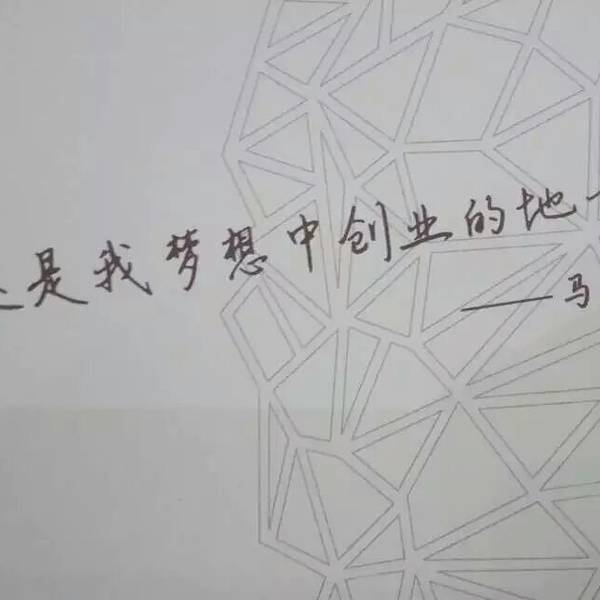 是我梦想中创业的地
——马